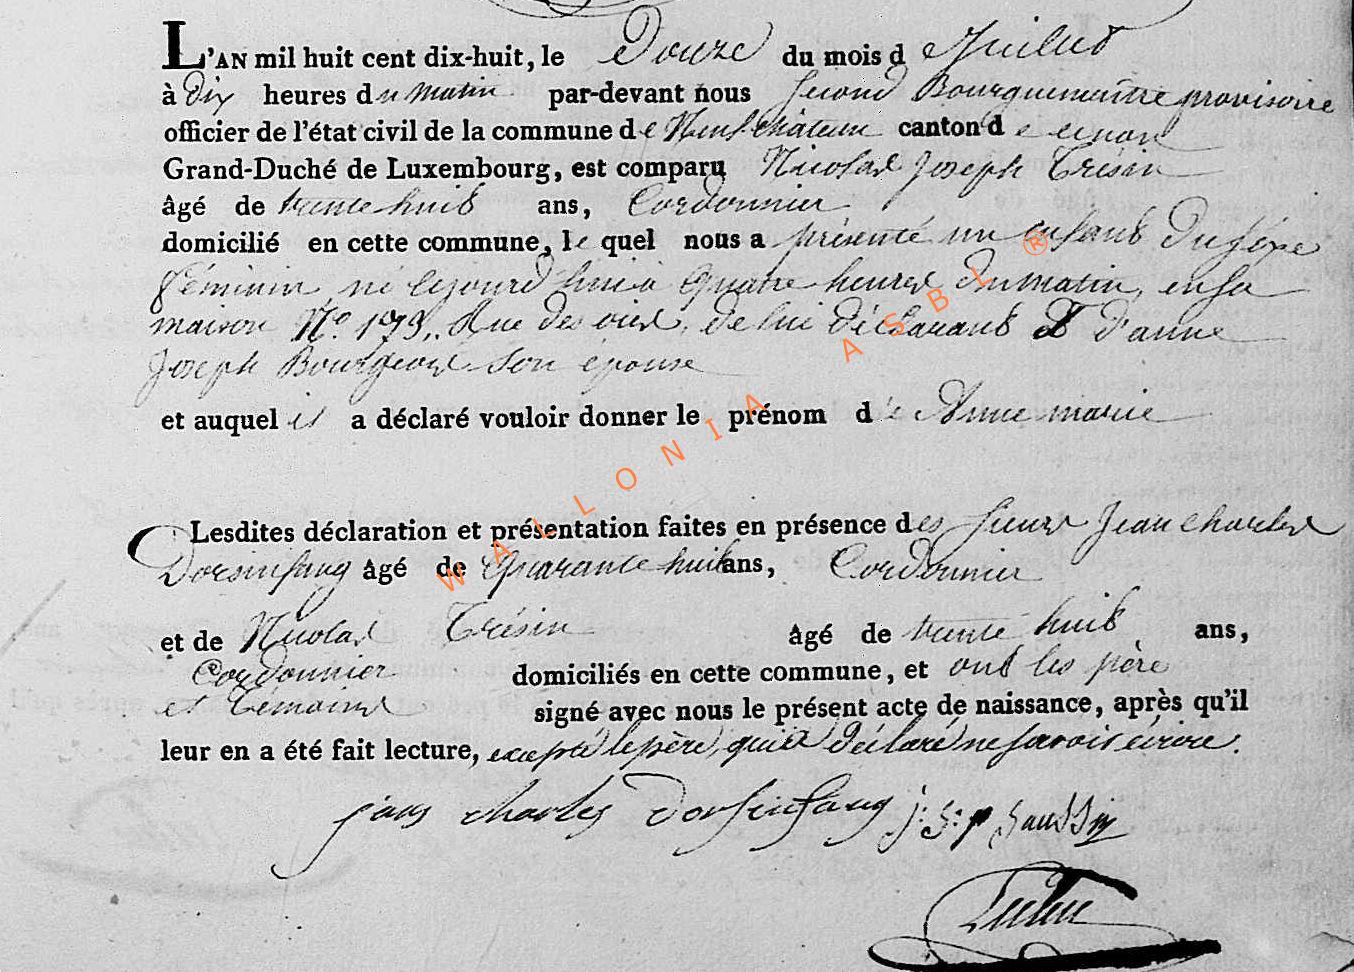 L'AN mil huit cent dix-huit, le Douze du mois d Juillet
à dix heures du matin par-devant nous second Bourguemaître provisoire
officier de l'état civil de la commune de Neufchateau canton d e
Grand-Duché de Luxembourg, est comparu Nicolas Joseph Trisin
âgé de trente huit ans, Cordonnier
domicilié en cette commune, le quel nous a présenté un enfant du sexe
féminin né cejourd'hui à quatre heures du matin, en sa
maison N.º 179, Rue des de lui déclarant & D'anne
Joseph Bourgeois son épouse
et auquel il a déclaré vouloir donner le prénom de Anne marie
Lesdites déclaration et présentation faites en présence des sieurs Jean Charles
Dorsinfang âgé de Quarante huit ans, Cordonnier
et de Nicolas Trisin âgé de trente huit ans,
Cordonnier domiciliés en cette commune, et ont les père
et témoins signé avec nous le présent acte de naissance, après qu'il
leur en a été fait lecture, excepté le père, qui a déclaré ne savoir écrire.
jean charles dorsinfang
WALLONIA ASBL ®